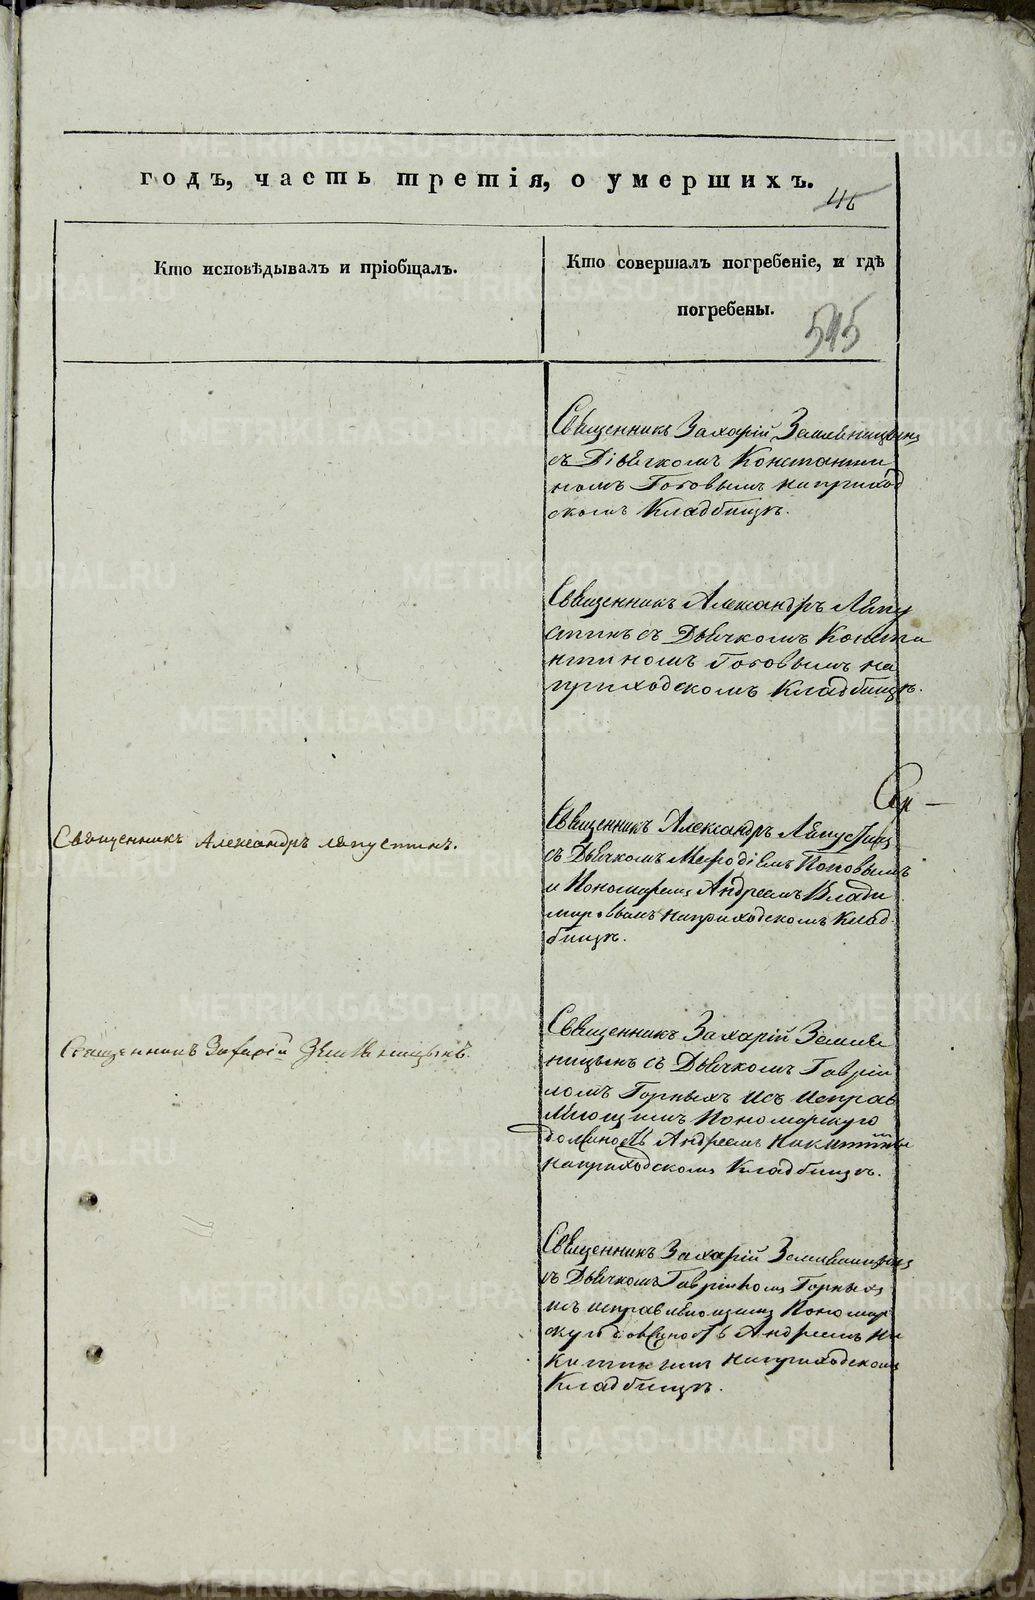 годъ, часть третія, о умершихъ.
46
Кто исповѣдывалъ и пріобщалъ.
Кто совершалъ погребеніе, и гдѣ
погребены.
545
Священникъ Захарій Земляницынъ
съ Діячкомъ Константи
номъ Поповымъ на приход
скомъ Кладбищѣ.
Священникъ Александръ Ляпу
стинъ съ Дьячкомъ Конста
нтиномъ Поповымъ на
приходскомъ Кладбищѣ.
Священникъ Александръ Ляпустинъ.
Священникъ Александръ Ляпустинъ
съ Дьячкомъ Меѳодіемъ Поповымъ
и Пономаремъ Андреемъ Влади
мировымъ на приходскомъ Клад
бищѣ.
Священникъ Захарій Земляницынъ.
Священникъ Захарій Земля
ницынъ съ Дьячкомъ Гаврiи
ломъ Горныхъ и съ исправ
ляющимъ Пономарскую
должность Андреемъ Никитины
на приходскомъ Кладбищѣ.
Священникъ Захарій Земляницынъ
съ Дьячкомъ Гавріиломъ Горныхъ
и съ исправляющимъ Пономар
скую должность Андреемъ Ни
китинымъ на приходскомъ
Кладбищѣ.
METRIKI.GASO-URAL.RU